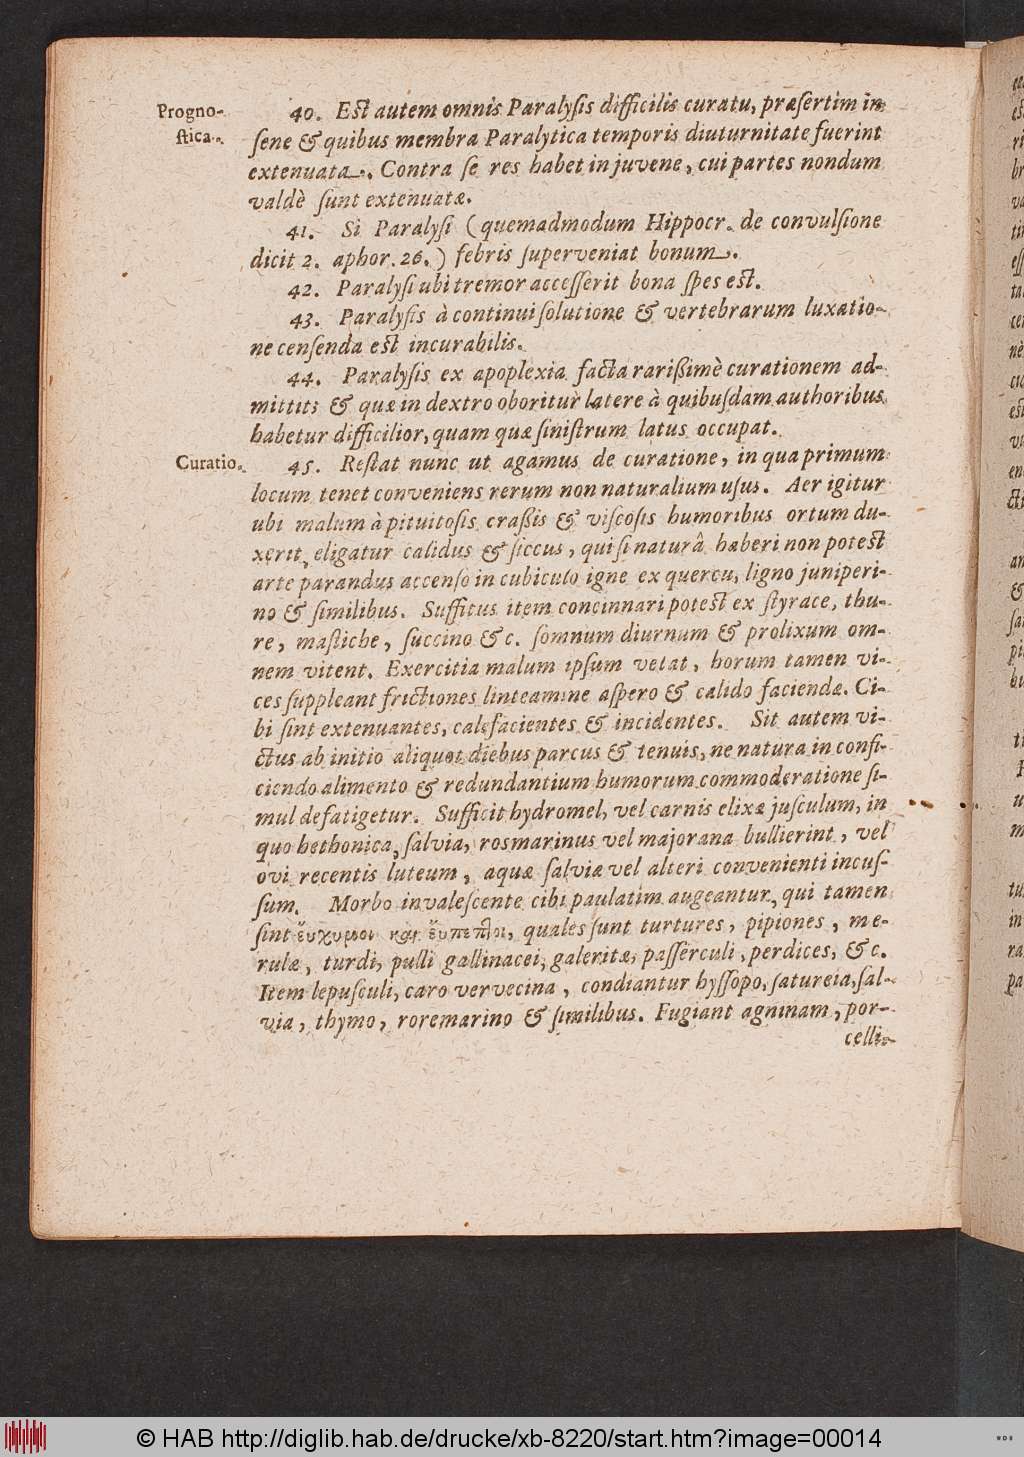 Progno-
stica.
40. Est autem omnis Paralysis difficilis curatu, præsertim in
sene & quibus membra Paralytica temporis diuturnitate fuerint
extenuata. Contra se res habet in juvene, cui partes nondum
valdè sunt extenuatæ.
41. Si Paralysi (quemadmodum Hippocr. de convulsione
dicit 2. aphor. 26.) febris superveniat bonum.
42. Paralysi ubi tremor accesserit bona spes est.
43. Paralysis à continui solutione & vertebrarum luxatio-
ne censenda est incurabilis.
44. Paralysis ex apoplexia facta rarißimè curationem ad-
mittit; & quæ in dextro oboritur latere à quibusdam authoribus
habetur difficilior, quam quæ sinistrum latus occupat.
Curatio.
45. Restat nunc ut agamus de curatione, in qua primum
locum tenet conveniens rerum non naturalium usus. Aer igitur
ubi malum à pituitosis craßis & viscosis humoribus ortum du-
xerit, eligatur calidus & siccus, qui si naturâ haberi non potest
arte parandus accenso in cubiculo igne ex quercu, ligno juniperi-
no & similibus. Suffitus item concinnari potest ex styrace, thu-
re, mastiche, succino & c. somnum diurnum & prolixum om-
nem vitent. Exercitia malum ipsum vetat, horum tamen vi-
ces suppleant frictiones linteamine aspero & calido faciendæ. Ci-
bi sint extenuantes, calefacientes & incidentes. Sit autem vi-
ctus ab initio aliquot diebus parcus & tenuis, ne natura in confi-
ciendo alimento & redundantium humorum commoderatione si-
mul defatigetur. Sufficit hydromel, vel carnis elixæ jusculum, in
quo bethonica, salvia, rosmarinus vel majorana bullierint, vel
ovi recentis luteum, aquæ salviæ vel alteri convenienti incus-
sum. Morbo invalescente cibi paulatim augeantur, qui tamen
sint ἔυχυμοι καὶ ἔυπεπτοι, quales sunt turtures, pipiones, me-
rulæ, turdi, pulli gallinacei, galeritæ, passerculi, perdices, & c.
Item lepusculi, caro vervecina, condiantur hyssopo, satureia, sal-
via, thymo, roremarino & similibus. Fugiant agninam, por-
celli-
© HAB http://diglib.hab.de/drucke/xb-8220/start.htm?image=00014